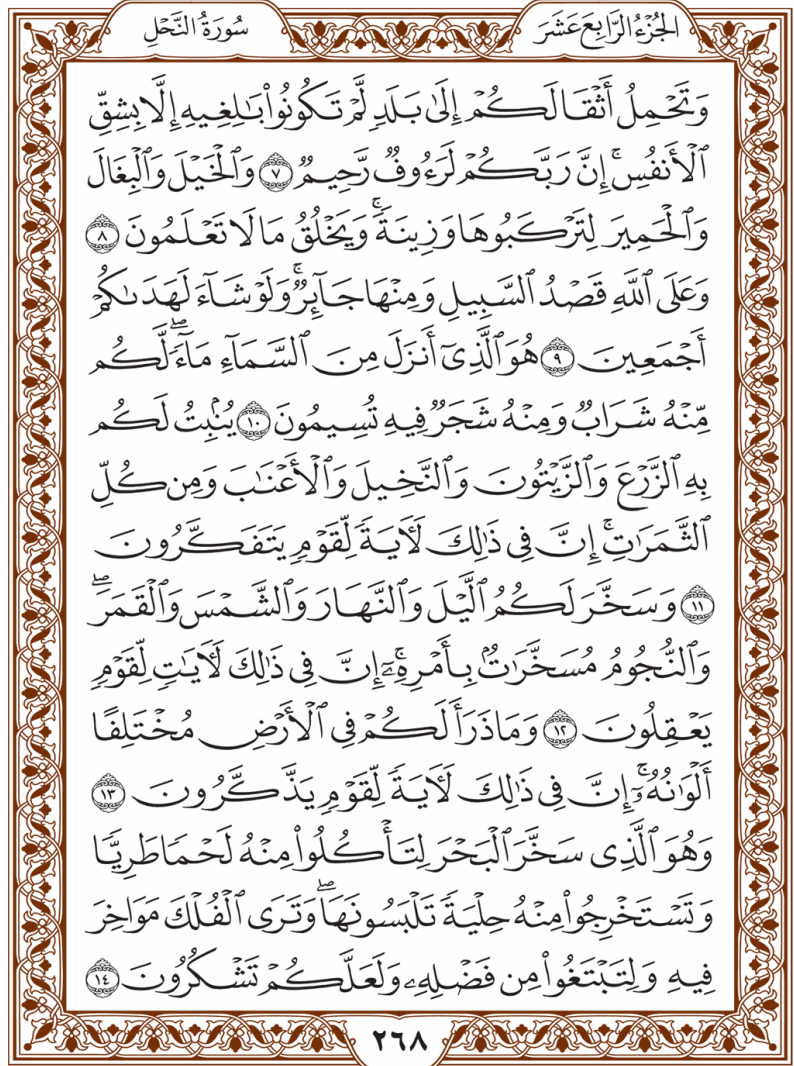 الجُزْءُ الرَّابِعَ عَشَرَ
سُورَةُ النَّحْلِ
وَتَحْمِلُ أَثْقَالَكُمْ إِلَىٰ بَلَدٍ لَّمْ تَكُونُوا۟ بَٰلِغِيهِ إِلَّا بِشِقِّ
ٱلْأَنفُسِ ۚ إِنَّ رَبَّكُمْ لَرَءُوفٌ رَّحِيمٌ ٧ وَٱلْخَيْلَ وَٱلْبِغَالَ
وَٱلْحَمِيرَ لِتَرْكَبُوهَا وَزِينَةً ۚ وَيَخْلُقُ مَا لَا تَعْلَمُونَ ٨
وَعَلَى ٱللَّهِ قَصْدُ ٱلسَّبِيلِ وَمِنْهَا جَآئِرٌ ۚ وَلَوْ شَآءَ لَهَدَىٰكُمْ
أَجْمَعِينَ ٩ هُوَ ٱلَّذِىٓ أَنزَلَ مِنَ ٱلسَّمَآءِ مَآءً ۖ لَّكُم
مِّنْهُ شَرَابٌ وَمِنْهُ شَجَرٌ فِيهِ تُسِيمُونَ ١٠ يُنۢبِتُ لَكُم
بِهِ ٱلزَّرْعَ وَٱلزَّيْتُونَ وَٱلنَّخِيلَ وَٱلْأَعْنَٰبَ وَمِن كُلِّ
ٱلثَّمَرَٰتِ ۗ إِنَّ فِى ذَٰلِكَ لَءَايَةً لِّقَوْمٍ يَتَفَكَّرُونَ
١١ وَسَخَّرَ لَكُمُ ٱلَّيْلَ وَٱلنَّهَارَ وَٱلشَّمْسَ وَٱلْقَمَرَ ۖ
وَٱلنُّجُومُ مُسَخَّرَٰتٌۢ بِأَمْرِهِۦٓ ۗ إِنَّ فِى ذَٰلِكَ لَءَايَٰتٍ لِّقَوْمٍ
يَعْقِلُونَ ١٢ وَمَا ذَرَأَ لَكُمْ فِى ٱلْأَرْضِ مُخْتَلِفًا
أَلْوَٰنُهُۥٓ ۗ إِنَّ فِى ذَٰلِكَ لَءَايَةً لِّقَوْمٍ يَذَّكَّرُونَ ١٣
وَهُوَ ٱلَّذِى سَخَّرَ ٱلْبَحْرَ لِتَأْكُلُوا۟ مِنْهُ لَحْمًا طَرِيًّا
وَتَسْتَخْرِجُوا۟ مِنْهُ حِلْيَةً تَلْبَسُونَهَا ۖ وَتَرَى ٱلْفُلْكَ مَوَاخِرَ
فِيهِ وَلِتَبْتَغُوا۟ مِن فَضْلِهِۦ وَلَعَلَّكُمْ تَشْكُرُونَ ١٤
٢٦٨